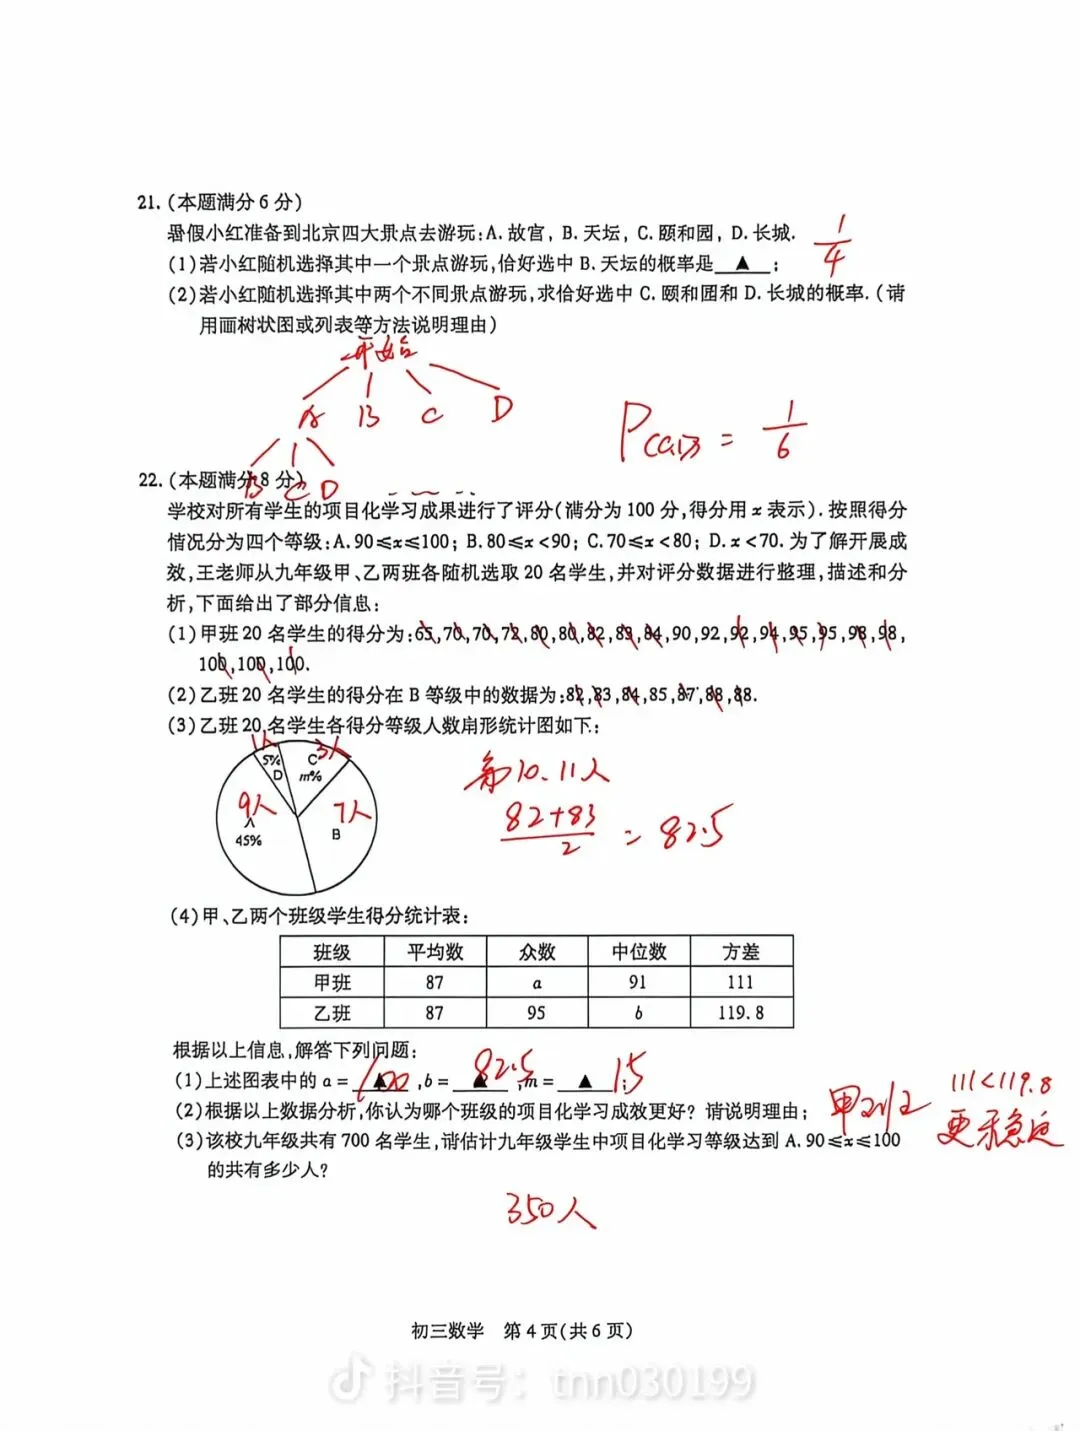 21.(本题满分6分)
暑假小红准备到北京四大景点去游玩:A.故宫, B.天坛, C.颐和园, D.长城.
(1)若小红随机选择其中一个景点游玩,恰好选中B.天坛的概率是▲;
1/4
(2)若小红随机选择其中两个不同景点游玩,求恰好选中C.颐和园和D.长城的概率.(请
用画树状图或列表等方法说明理由)
开始
A B C D
B C D
P(C,D) = 1/6
22.(本题满分8分)
学校对所有学生的项目化学习成果进行了评分(满分为100分,得分用x表示).按照得分
情况分为四个等级:A.90≤x≤100; B.80≤x<90; C.70≤x<80; D.x<70.为了解开展成
效,王老师从九年级甲、乙两班各随机选取20名学生,并对评分数据进行整理,描述和分
析,下面给出了部分信息:
(1)甲班20名学生的得分为:65,70,70,72,80,80,82,83,84,90,92,92,94,95,95,98,98,
100,100,100.
(2)乙班20名学生的得分在B等级中的数据为:82,83,84,85,87,88,88.
(3)乙班20名学生各得分等级人数扇形统计图如下:
1人 3人
5% C
D m%
9人 7人
A B
45%
第10.11人
82+83/2 = 82.5
(4)甲、乙两个班级学生得分统计表:
班级 平均数 众数 中位数 方差
甲班 87 a 91 111
乙班 87 95 b 119.8
根据以上信息,解答下列问题:
(1)上述图表中的a=▲,b=▲,m=▲;
100 82.5 15
(2)根据以上数据分析,你认为哪个班级的项目化学习成效更好?请说明理由;
甲班
111<119.8
更稳定
(3)该校九年级共有700名学生,请估计九年级学生中项目化学习等级达到A.90≤x≤100
的共有多少人?
350人
初三数学 第4页(共6页)
抖音号：tnn030199